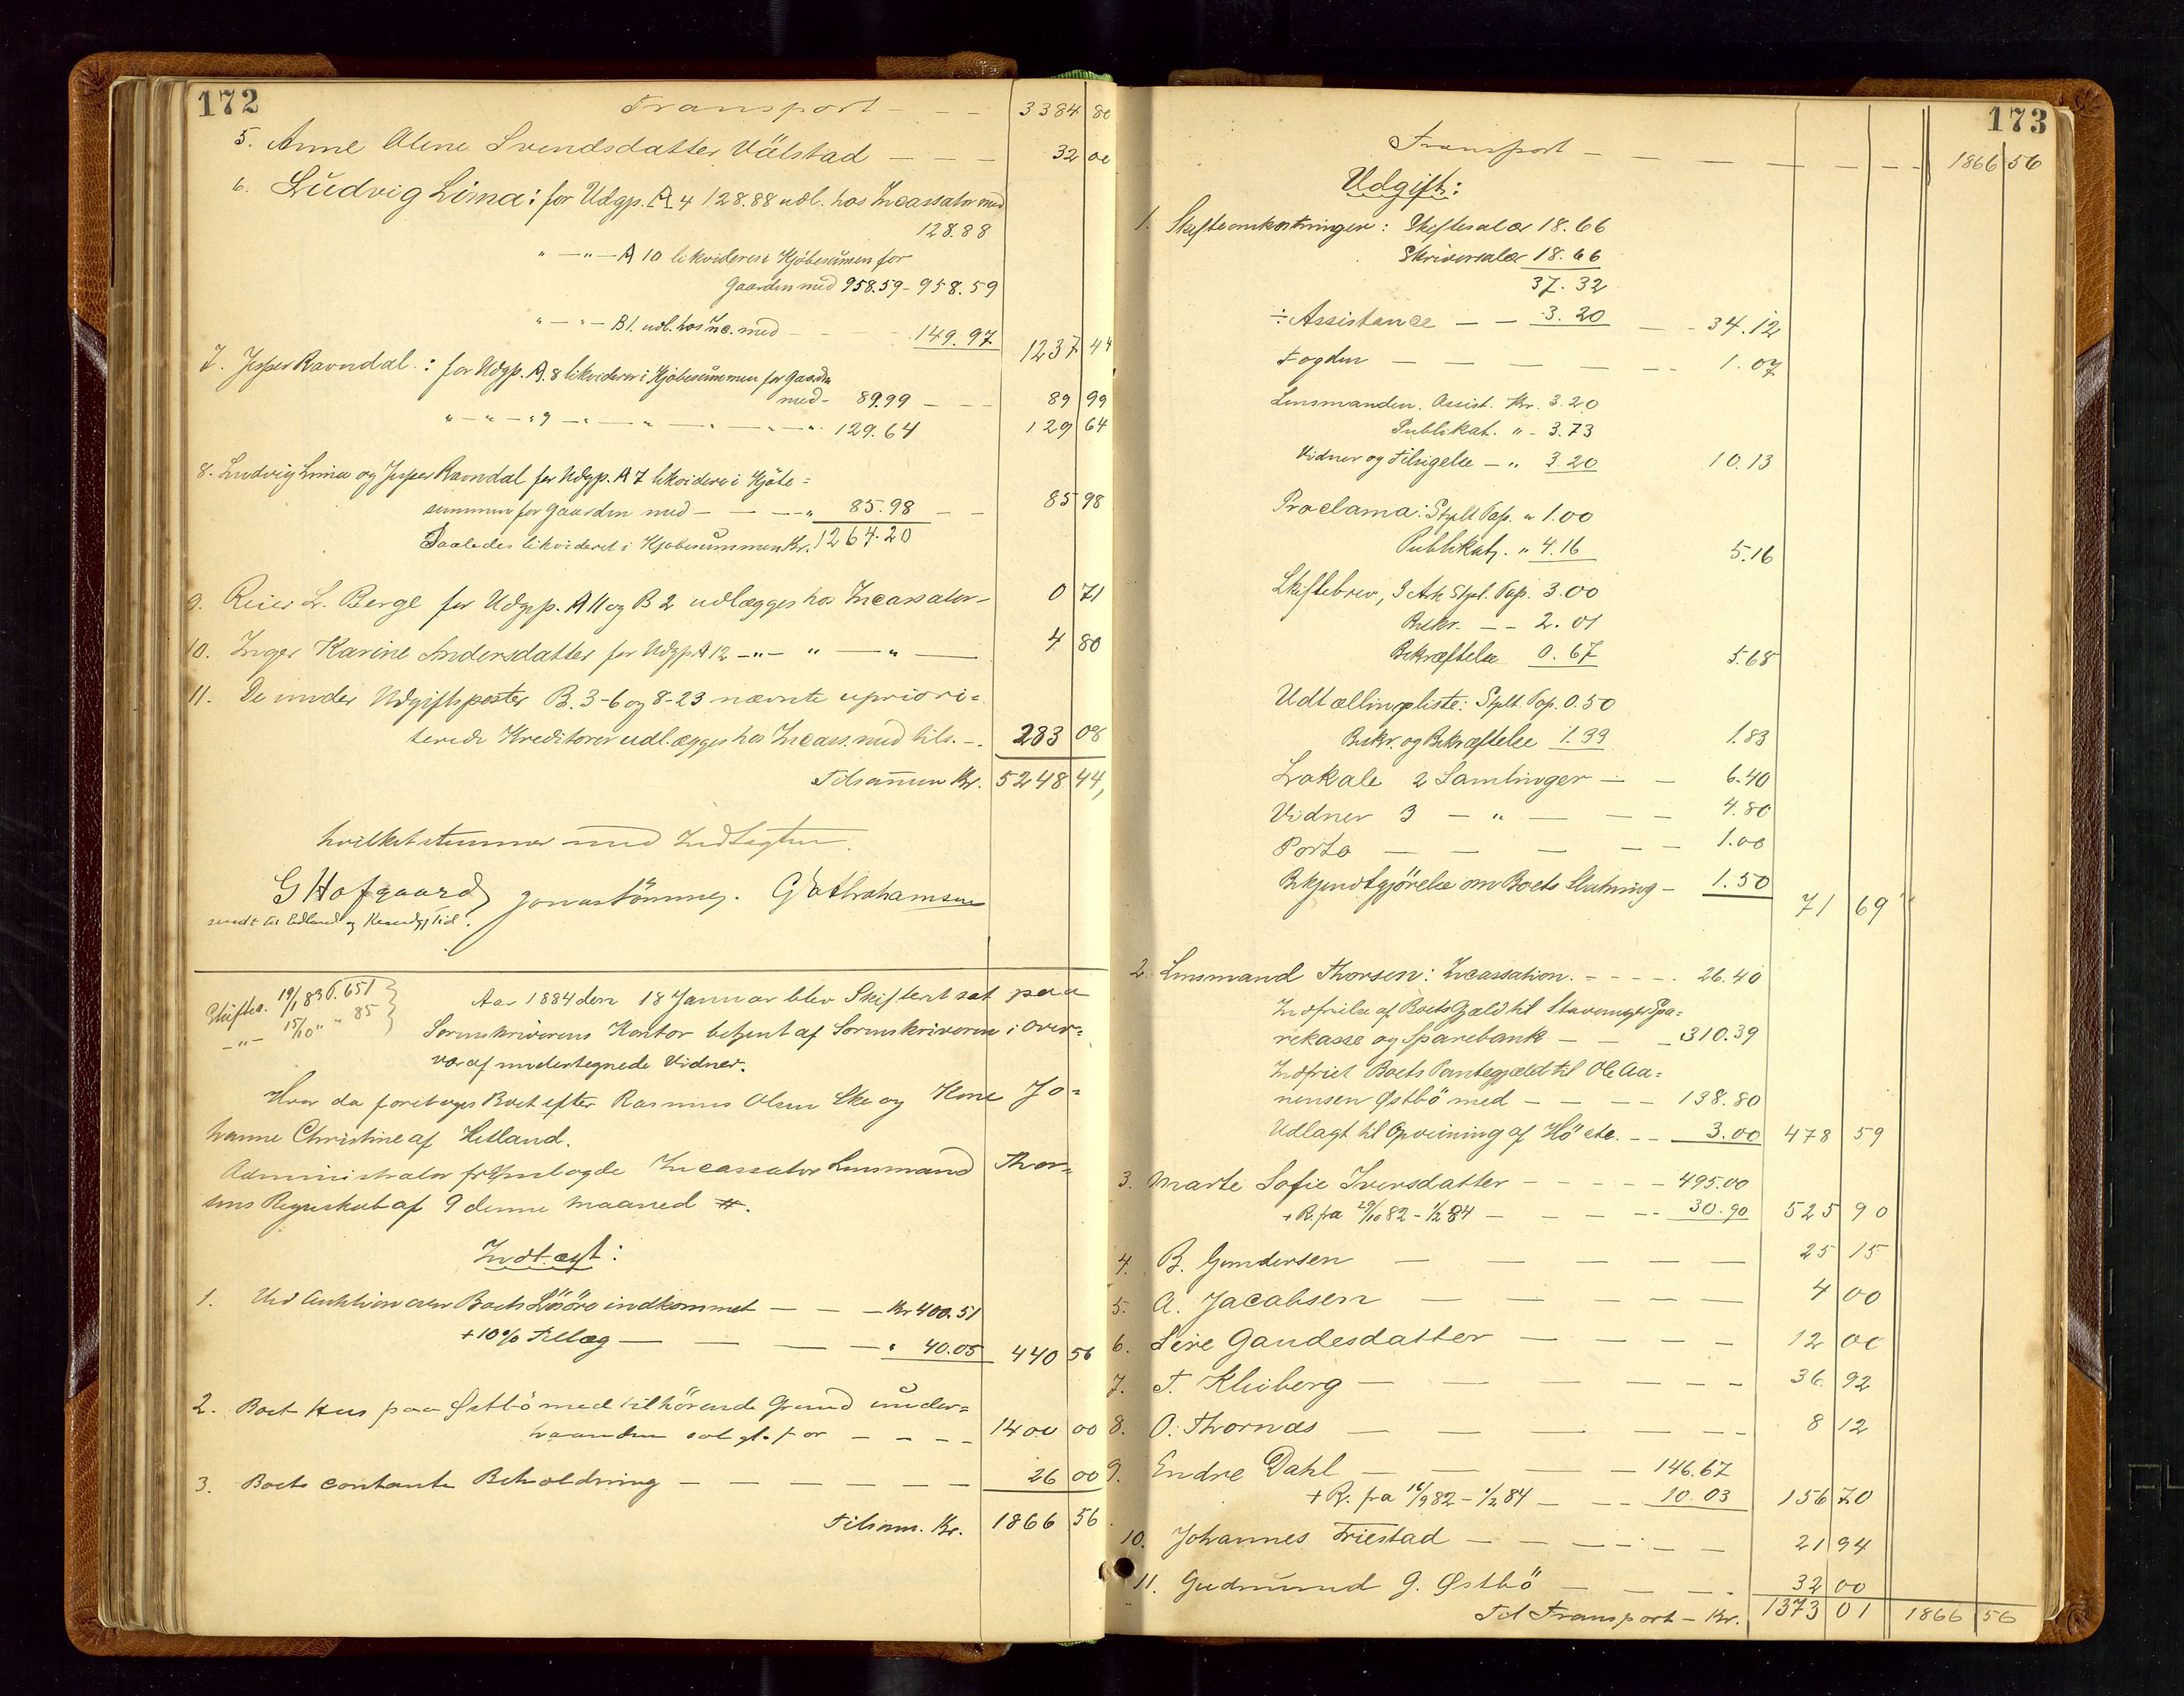 172
Transport — — — 3384 80
5. Anne Olene Svendsdatter Välstad — — — 32 00
6. Ludvig Lima: for Udgp. A 4 128.88 udl. hos Incassator med
128.88
" — " — A 10 likvideres i Kjöbesummen for
Gaarden med 958.59 - 958.59
" — " — B 1. udl. hos Inc. med — 149.97 1237 44
7. Jesper Ravndal: for Udgp. A. 8 likviderer i Kjöbesummen for Gaarden
med - 89.99 — — 89 99
" — " — " 9 — " — " — " — " — " 129.64 129 64
8. Ludvig Lima og Jesper Ravndal for Udgp. A 7 likviderer i Kjöbe=
summen for Gaarden med — — — " 85.98 — — 85 98
Saaledes likvideret i Kjöbesummen Kr. 1264.20
9. Reier L. Berge for Udgp. A 11 og B 2 udlægges hos Incassator — 0 71
10. Inger Karine Andersdatter for Udgp A 12 — " — " — " — 4 80
11. De under Udgiftsposter B. 3-6 og 8-23 nævnte upriori=
terede Kreditorer udlægges hos Incass. med tils. — . 283 08
Tilsammen Kr. 5248 44,
hvilket stemmer med Indtægten.
G Hofgaard Jonas Tönnes. G Abrahamsen
sendt til Edland og
Skiftes. 19/1 83 F. 651
— " — 15/10 " " 85
Aar 1884 den 18 Januar blev Skifteret sat paa
Sorenskriverens Kontor betjent af Sorenskriveren i Over=
vær af undertegnede Vidner.
Hvor da foretoges Boet efter Rasmus Olsen Eke og Kone Jo=
hanne Christine af Hetland.
Administrator fremlagde Incassator Lensmand Thor=
sens Regnskab af 9 denne Maaned
Indtægt:
1. Ved Auktion over Boets Lösöre indkommet — — — Kr 400.51
+ 10% Tillæg — — — — " 40.05 440 56
2. Boets Hus paa Østbö med tilhörende Grund under=
haanden solgt for — — — — 1400 00
3. Boets contante Beholdning — — — — — 26 00
Tilsam. Kr. 1866 56.
173
Transport — — — — — — — — 1866 56
Udgift:
1. Skifteomkostninger: Skiftesalær 18.66
Skriversalær 18.66
37.32
÷ Assistance — — 3.20 — — 34.12
Fogden — — — — — — 1.07
Lensmanden. Assist. Kr. 3.20
Publikat. " - 3.73
Vidner og Tilsigelse — " 3.20 10.13
Proclama: Stplt Pap. " 1.00
Publikat. " 4.16 5.16
Skiftebrev, 3 Ark Stpl. Pap. 3.00
Beskr. — — 2.01
Bekræftelse 0.67 5.68
Udtællingsliste: Stplt. Pap. 0.50
Beskr. og Bekræftelse 1.33 1.83
Lokale 2 Samlinger — — 6.40
Vidner 3 — " — — — 4.80
Porto — — — — — — 1.00
Bekjendtgjörelse om Boets Slutning — 1.50 71 69
2. Lensmand Thorsen: Incassation. — — — — 26.40
Indfrielse af Boets Gjæld til Stavanger Spa=
rekasse og Sparebank — — _ 310.39
Indfriet Boets Pantegjæld til Ole Aa=
nensen Østbö med — — — — 138.80
Udlagt til Opveining af Hö etc. — — 3.00 478 59
3. Marte Sofie Iversdatter — — — — — 495.00
+ R. fra 29/10 82 - 1/2 84 — — — — 30.90 525 90
4. B. Gundersen — — — — — 25 15
5. A. Jacobsen — — — — — 4 00
6. Sire Gaudesdatter — — — — 12 00
7. T. Kleiberg — — — — — — 36. 92
8. O. Thornæs — — — — — — 8 12
9. Endre Dahl — — — — — 146.67
+ R. fra 16/9 82 - 1/2 84 — — — 10.03 156 70
10. Johannes Friestad — — — — — — 21 94
11. Gudmund G. Østbö — — — — . 32 00
Til Transport — Kr. 1373 01 1866 56